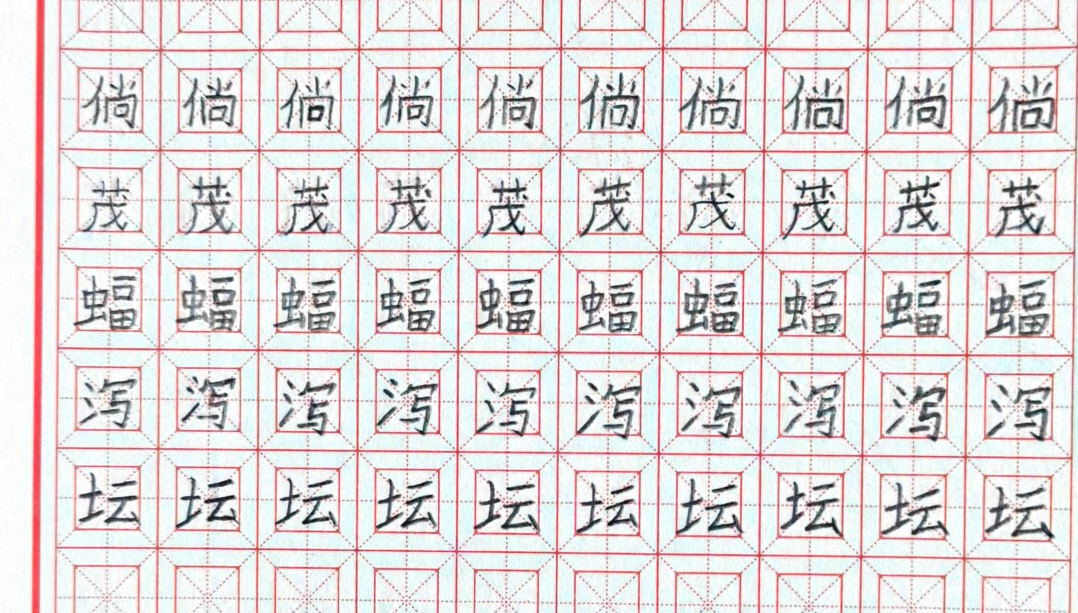 倘倘倘倘倘倘倘倘倘倘
茂茂茂茂茂茂茂茂茂茂
蝠蝠蝠蝠蝠蝠蝠蝠蝠蝠
泻泻泻泻泻泻泻泻泻泻
坛坛坛坛坛坛坛坛坛坛